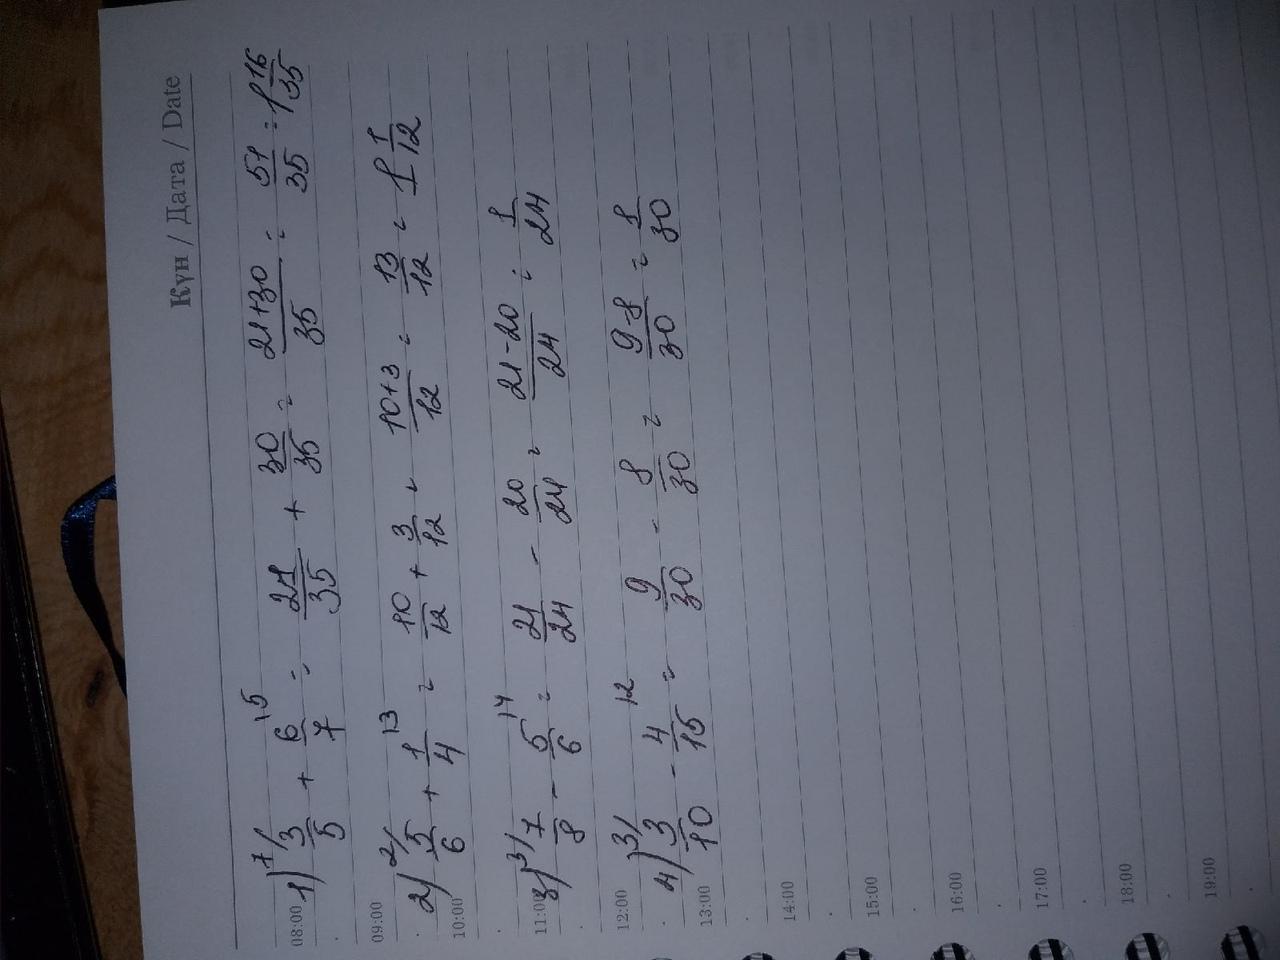 Күн / Дата / Date
08:00
1) 7/ 3/5 + 6/7 \5 = 21/35 + 30/35 = 21+30/35 = 51/35 = 1 16/35
09:00
2) 2/ 5/6 + 1/4 \3 = 10/12 + 3/12 = 10+3/12 = 13/12 = 1 1/12
10:00
11:00
3) 3/ 7/8 - 5/6 \4 = 21/24 - 20/24 = 21-20/24 = 1/24
12:00
4) 3/ 3/10 - 4/15 \2 = 9/30 - 8/30 = 9-8/30 = 1/30
13:00
14:00
15:00
16:00
17:00
18:00
19:00